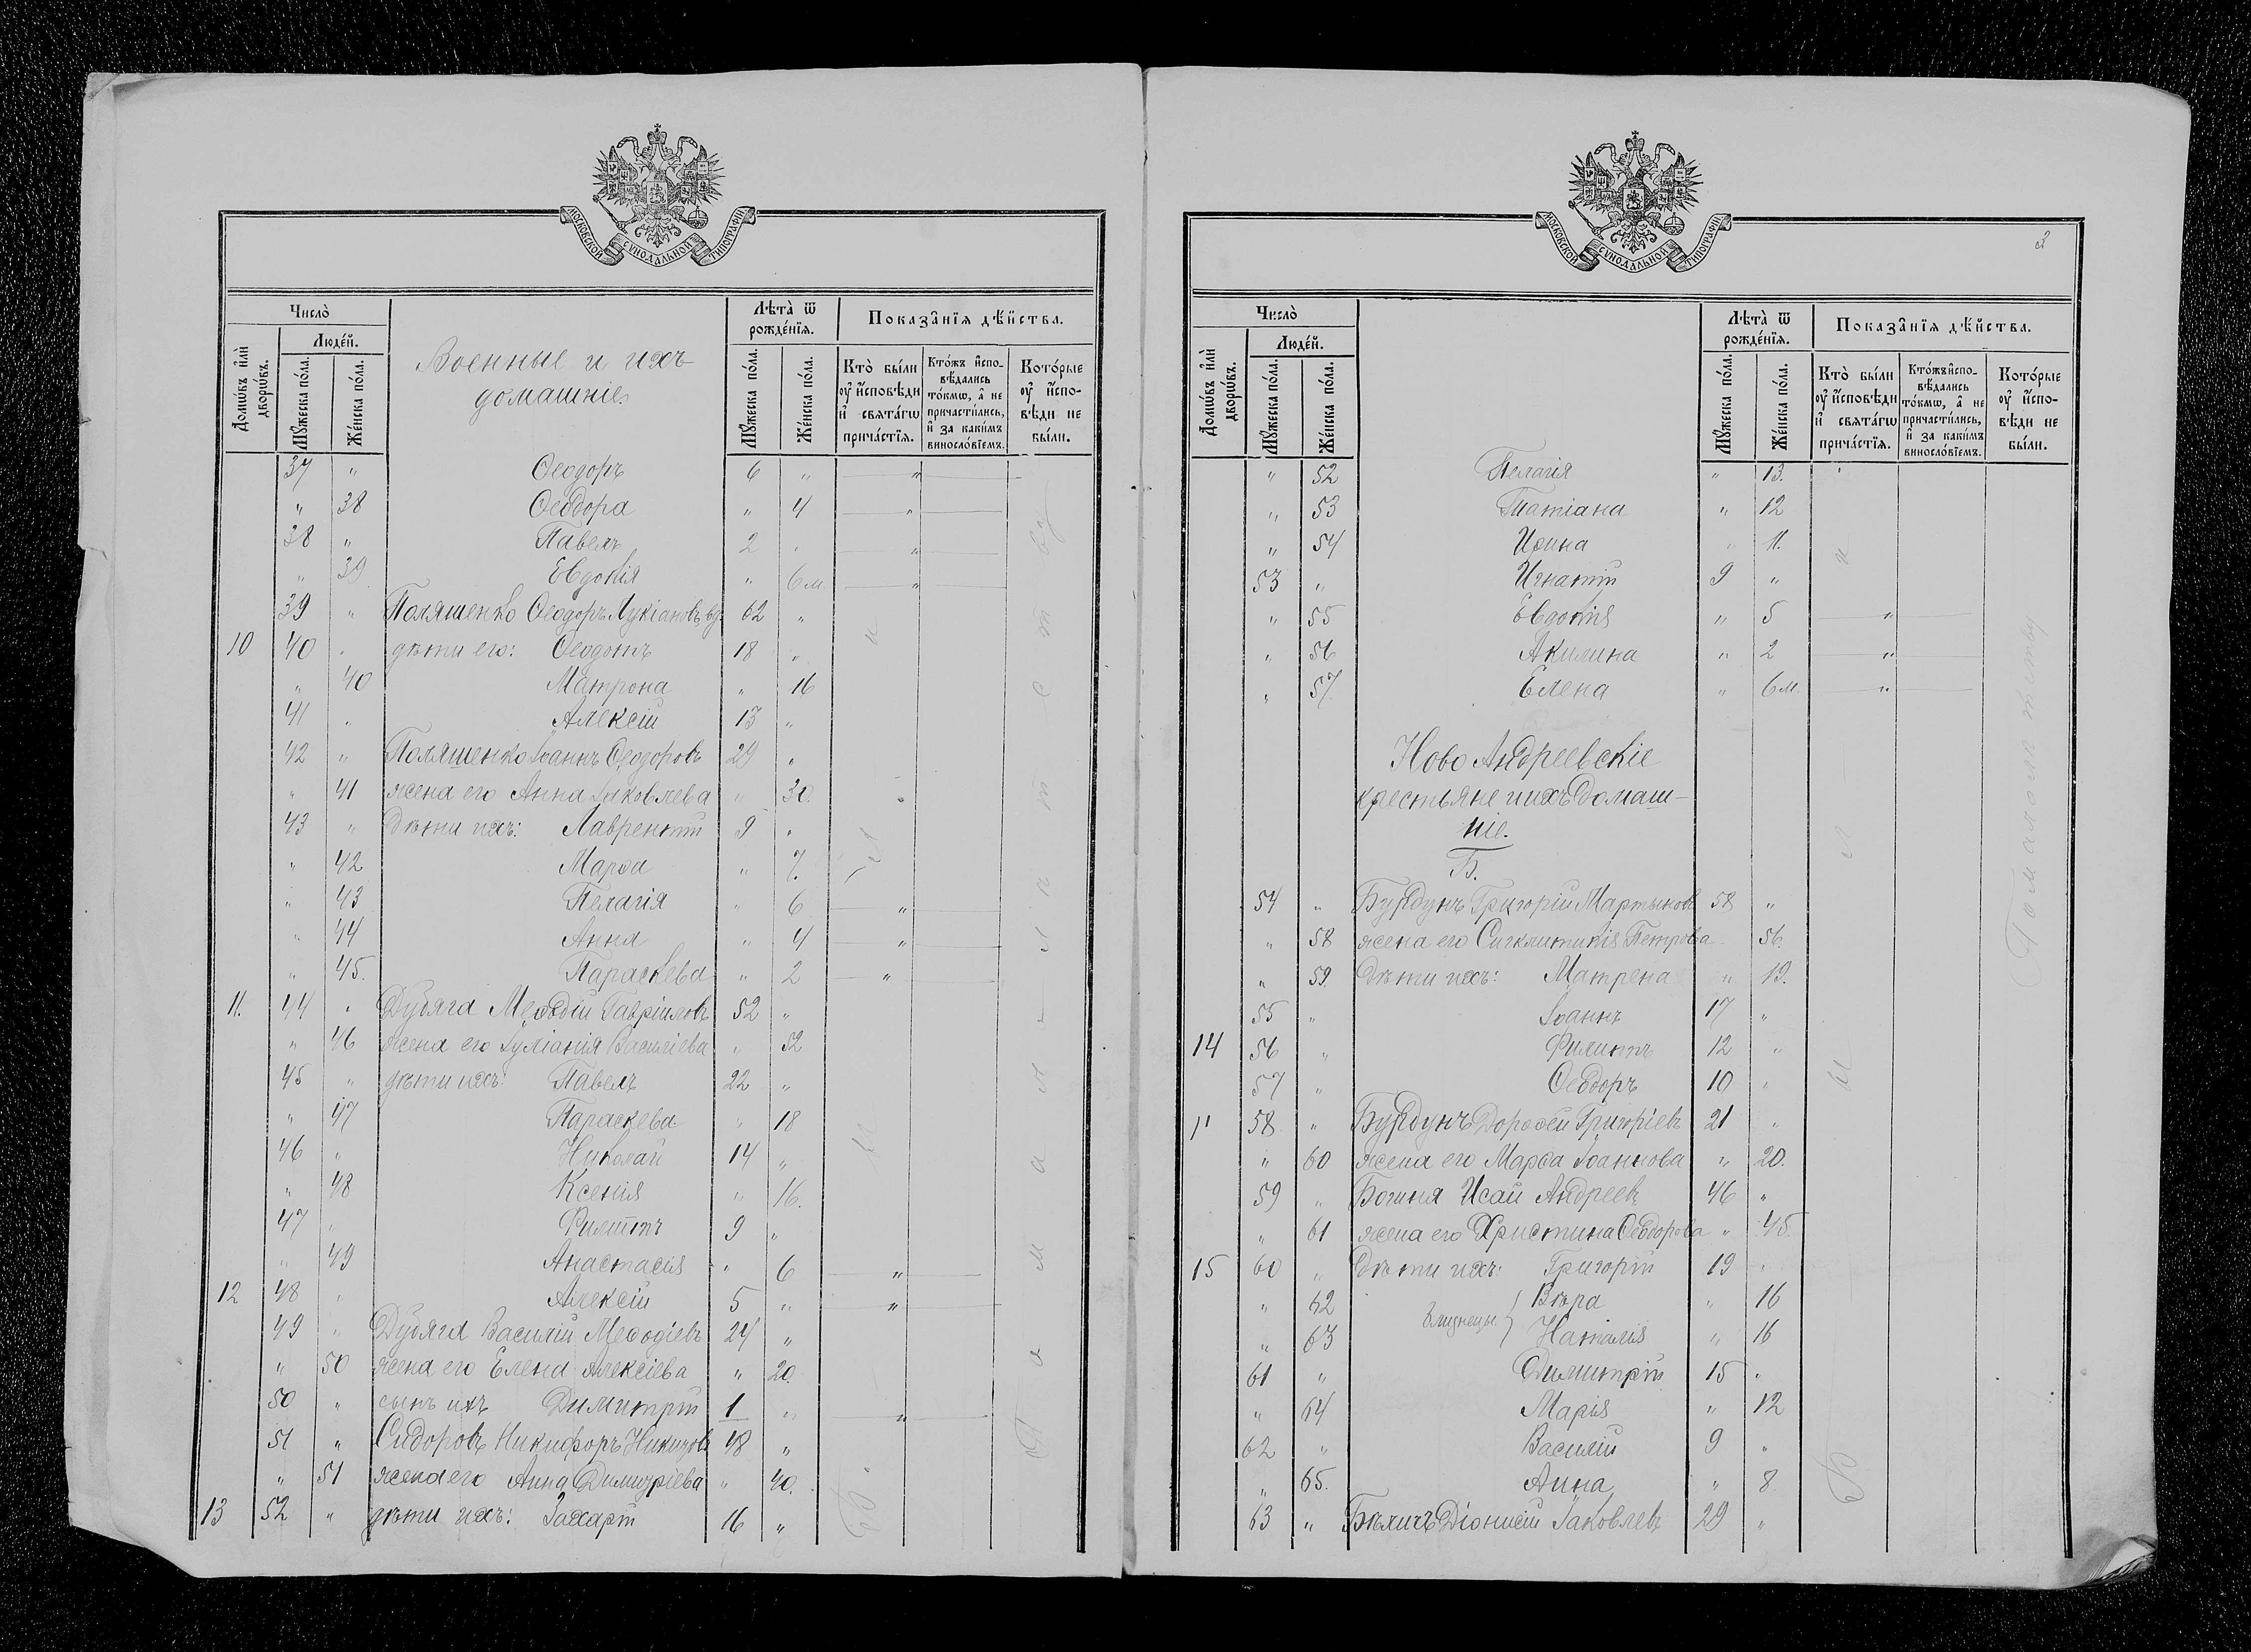 МОСКОВСКОЙ СѴНОДАЛЬНОЙ ТИПОГРАФІИ
Число̀
Люде́й.
Домѡ́въ и҆лѝ дворѡ́въ.
Мꙋ́жеска по́ла.
Же́нска по́ла.
Военные и ихъ
домашніе.
Лѣта̀ ѿ рожде́нїя.
Мꙋ́жеска по́ла.
Же́нска по́ла.
Показа̑нїя дѣ́йства.
Кто̀ бы́ли ᲂу҆ и҆́сповѣди и҆ свѧта́гѡ прича́стїѧ.
Кто́жъ и҆спо-вѣ́дались то́кмѡ, а҆ не причасти́лись, и҆ за каки́мъ винослові́емъ.
Кото́рые ᲂу҆ и҆́спо-вѣди не бы́ли.
37 " Ѳеодоръ 6 " "
" 38 Ѳеодора " 4 "
38 " Павелъ 2 " "
" 39 Евдокія " 6 м "
39 " Поляшенко Ѳеодоръ Лукіановъ вд. 62 "
10 40 " дѣти его: Ѳеодотъ 18 "
" 40 Матрона " 16
41 " Алексій 13 "
42 " Поляшенко Іоаннъ Ѳеодоровъ 29 "
" 41 жена его Анна Іаковлева " 30.
43 " Дѣти ихъ: Лаврентій 9 "
" 42 Марѳа " 7.
" 43 Пелагія " 6 "
" 44 Анна " 4 "
" 45. Параскева " 2 "
11. 44 " Дубяга Меѳодій Гавріиловъ 52 "
" 46 жена его Іуліанія Василіева " 52
45 " дѣти ихъ: Павелъ 22 "
" 47 Параскева " 18
46 " Николай 14 "
" 48 Ксенія " 16.
47 " Филиппъ 9 "
" 49 Анастасія " 6 "
12 48 " Алексій 5 " "
49 " Дубяга Василій Меѳодіевъ 24 "
" 50 жена его Елена Алексіева " 20.
50 " сынъ ихъ Димитрій 1 " "
51 " Сидоровъ Никифоръ 48 "
" 51 жена его Анна Димитріева " 40.
13 52 " дѣти ихъ: Захарій 16 "
МОСКОВСКОЙ СѴНОДАЛЬНОЙ ТИПОГРАФІИ
3
Число̀
Люде́й.
Домѡ́въ и҆лѝ дворѡ́въ.
Мꙋ́жеска по́ла.
Же́нска по́ла.
Лѣта̀ ѿ рожде́нїя.
Мꙋ́жеска по́ла.
Же́нска по́ла.
Показа̑нїя дѣ́йства.
Кто̀ бы́ли ᲂу҆ и҆́сповѣди и҆ свѧта́гѡ прича́стїѧ.
Кто́жъ и҆спо-вѣ́дались то́кмѡ, а҆ не причасти́лись, и҆ за каки́мъ винослові́емъ.
Кото́рые ᲂу҆ и҆́спо-вѣди не бы́ли.
" 52 Пелагія " 13. "
" 53 Татіана " 12
" 54 Ирина " 11.
53 " Игнатій 9 "
" 55 Евдокія " 5 "
" 56 Акилина " 2 "
" 57 Елена " 6 м. "
Ново Андреевскіе
крестьяне и ихъ домаш-
ніе.
Б.
54 " Бурдунъ Григорій Мартыновъ 58 "
" 58 жена его Сигклитикія Петрова 56.
" 59. Дѣти ихъ: Матрена " 19.
55 " Іоаннъ 17 "
14 56 " Филиппъ 12 "
57 " Ѳеодоръ 10 "
58 " Бурдунъ Дороѳей Григоріевъ 21 "
" 60 жена его Марѳа Іоаннова " 20.
59 " Богиня Исай Андреевъ 46 "
" 61 жена его Христина Ѳеодорова " 45.
15 60 " Дѣти ихъ: Григорій 19 "
" 62 Вѣра " 16
близнецы
" 63 Наталія " 16
61 " Димитрій 15 "
" 64 Марія " 12
62 " Василій 9 "
" 65. Анна " 8.
63 " Діонисій Іаковлевъ 29 "
Были
По малолѣтству